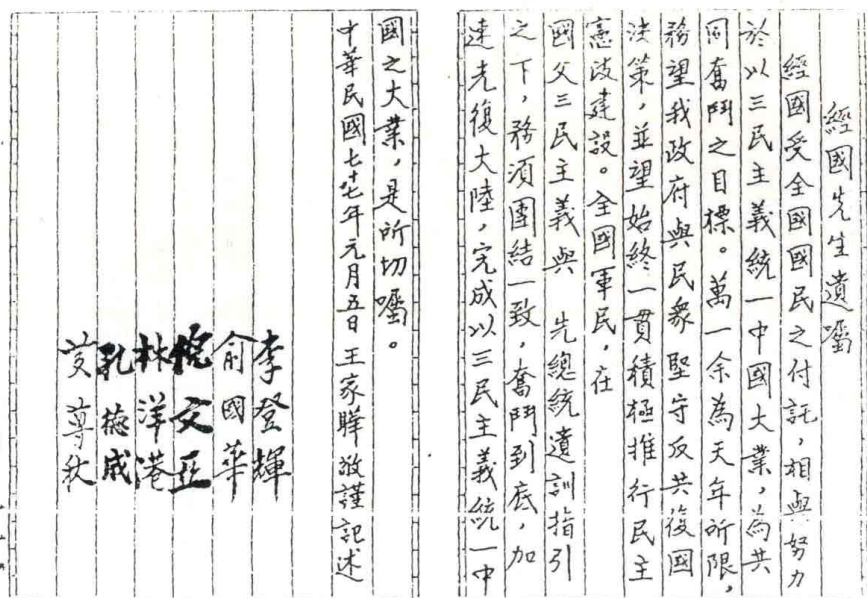 經國先生遺囑
經國受全國國民之付託，相與努力
於以三民主義統一中國大業，為共
同奮鬥之目標。萬一余為天年所限，
務望我政府與民眾堅守反共復國
決策，並望始終一貫積極推行民主
憲政建設。全國軍民，在
國父三民主義與　先總統遺訓指引
之下，務須團結一致，奮鬥到底，加
速光復大陸，完成以三民主義統一中
國之大業，是所切囑。
中華民國七十七年元月五日王家驊敬謹記述
李登輝
俞國華
倪文亞
林洋港
孔德成
黃尊秋